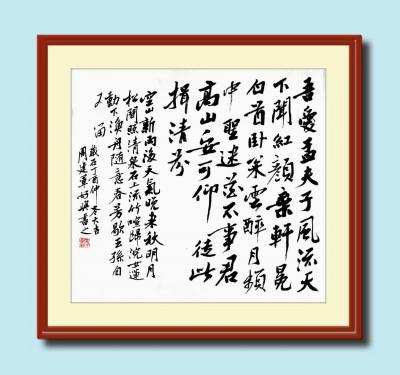 吾愛孟夫子風流天
下聞紅顏棄軒冕
白首卧松雲醉月頻
中聖迷花不事君
高山安可仰徒此
揖清芬
空山新雨後天氣晚來秋明月
松間照清泉石上流竹喧歸浣女蓮
動下漁舟隨意春芳歇王孫自
可留
歲在丁酉仲冬大吉
周建軍書之